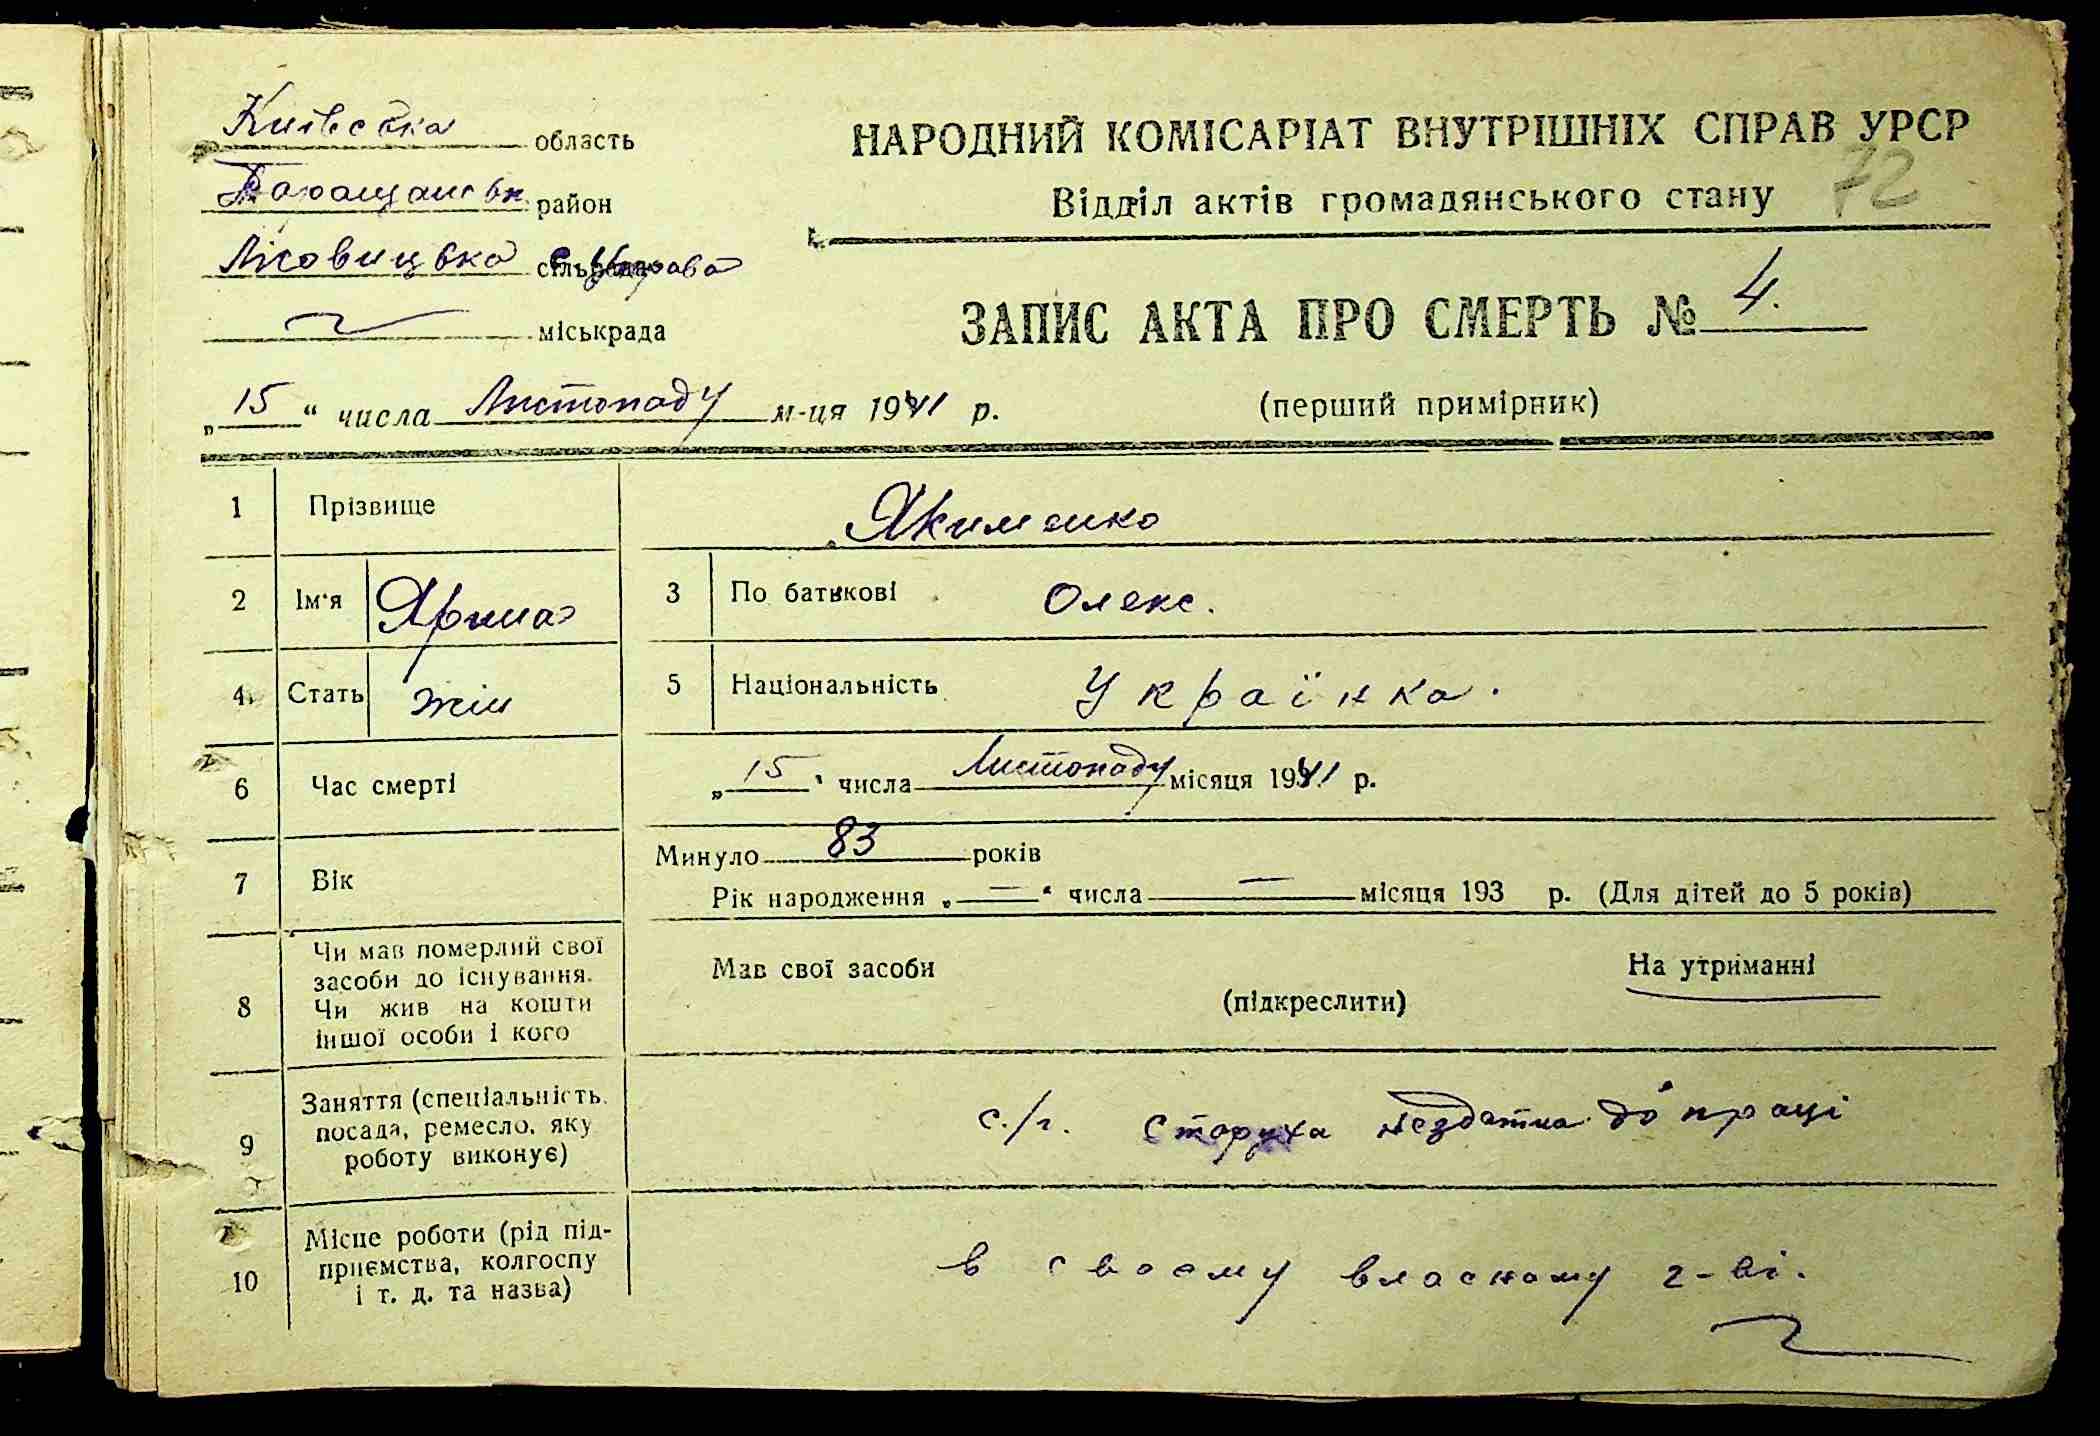 Київська область
Таращанськ. район
Лісовицька с. Управа
міськрада
НАРОДНИЙ КОМІСАРІАТ ВНУТРІШНІХ СПРАВ УРСР
72
Відділ актів громадянського стану
ЗАПИС АКТА ПРО СМЕРТЬ № 4.
„15“ числа Листопаду м-ця 1941 р.
(перший примірник)
1 Прізвище Якименко
2 Ім'я Ярина 3 По батькові Олекс.
4 Стать жін 5 Національність Українка.
6 Час смерті „15“ числа Листопаду місяця 1941 р.
7 Вік Минуло 83 років
Рік народження „—“ числа — місяця 193 р. (Для дітей до 5 років)
8 Чи мав померлий свої
засоби до існування.
Чи жив на кошти
іншої особи і кого
Мав свої засоби
(підкреслити)
На утриманні
9 Заняття (спеціальність,
посада, ремесло, яку
роботу виконує)
с./г. старуха нездатна до праці
10 Місце роботи (рід під-
приємства, колгоспу
і т. д. та назва)
в своєму власному г-ві.